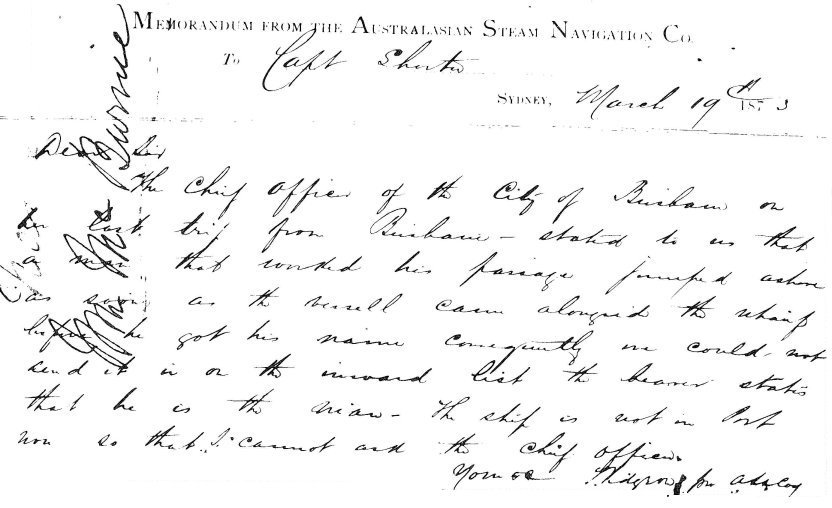 MEMORANDUM FROM THE AUSTRALASIAN STEAM NAVIGATION CO.
To Capt Shorter
SYDNEY, March 19th 1873
Dear Sir
The Chief Officer of the City of Brisbane on
her last trip from Brisbane - stated to us that
a man that worked his passage jumped ashore
as soon as the vessell came alongside the wharf
before he got his name consequently we could not
send it in on the inward list the bearer states
that he is the man - The ship is not in Port
now so that I cannot ask the chief officer.
Yours &c
Burnie